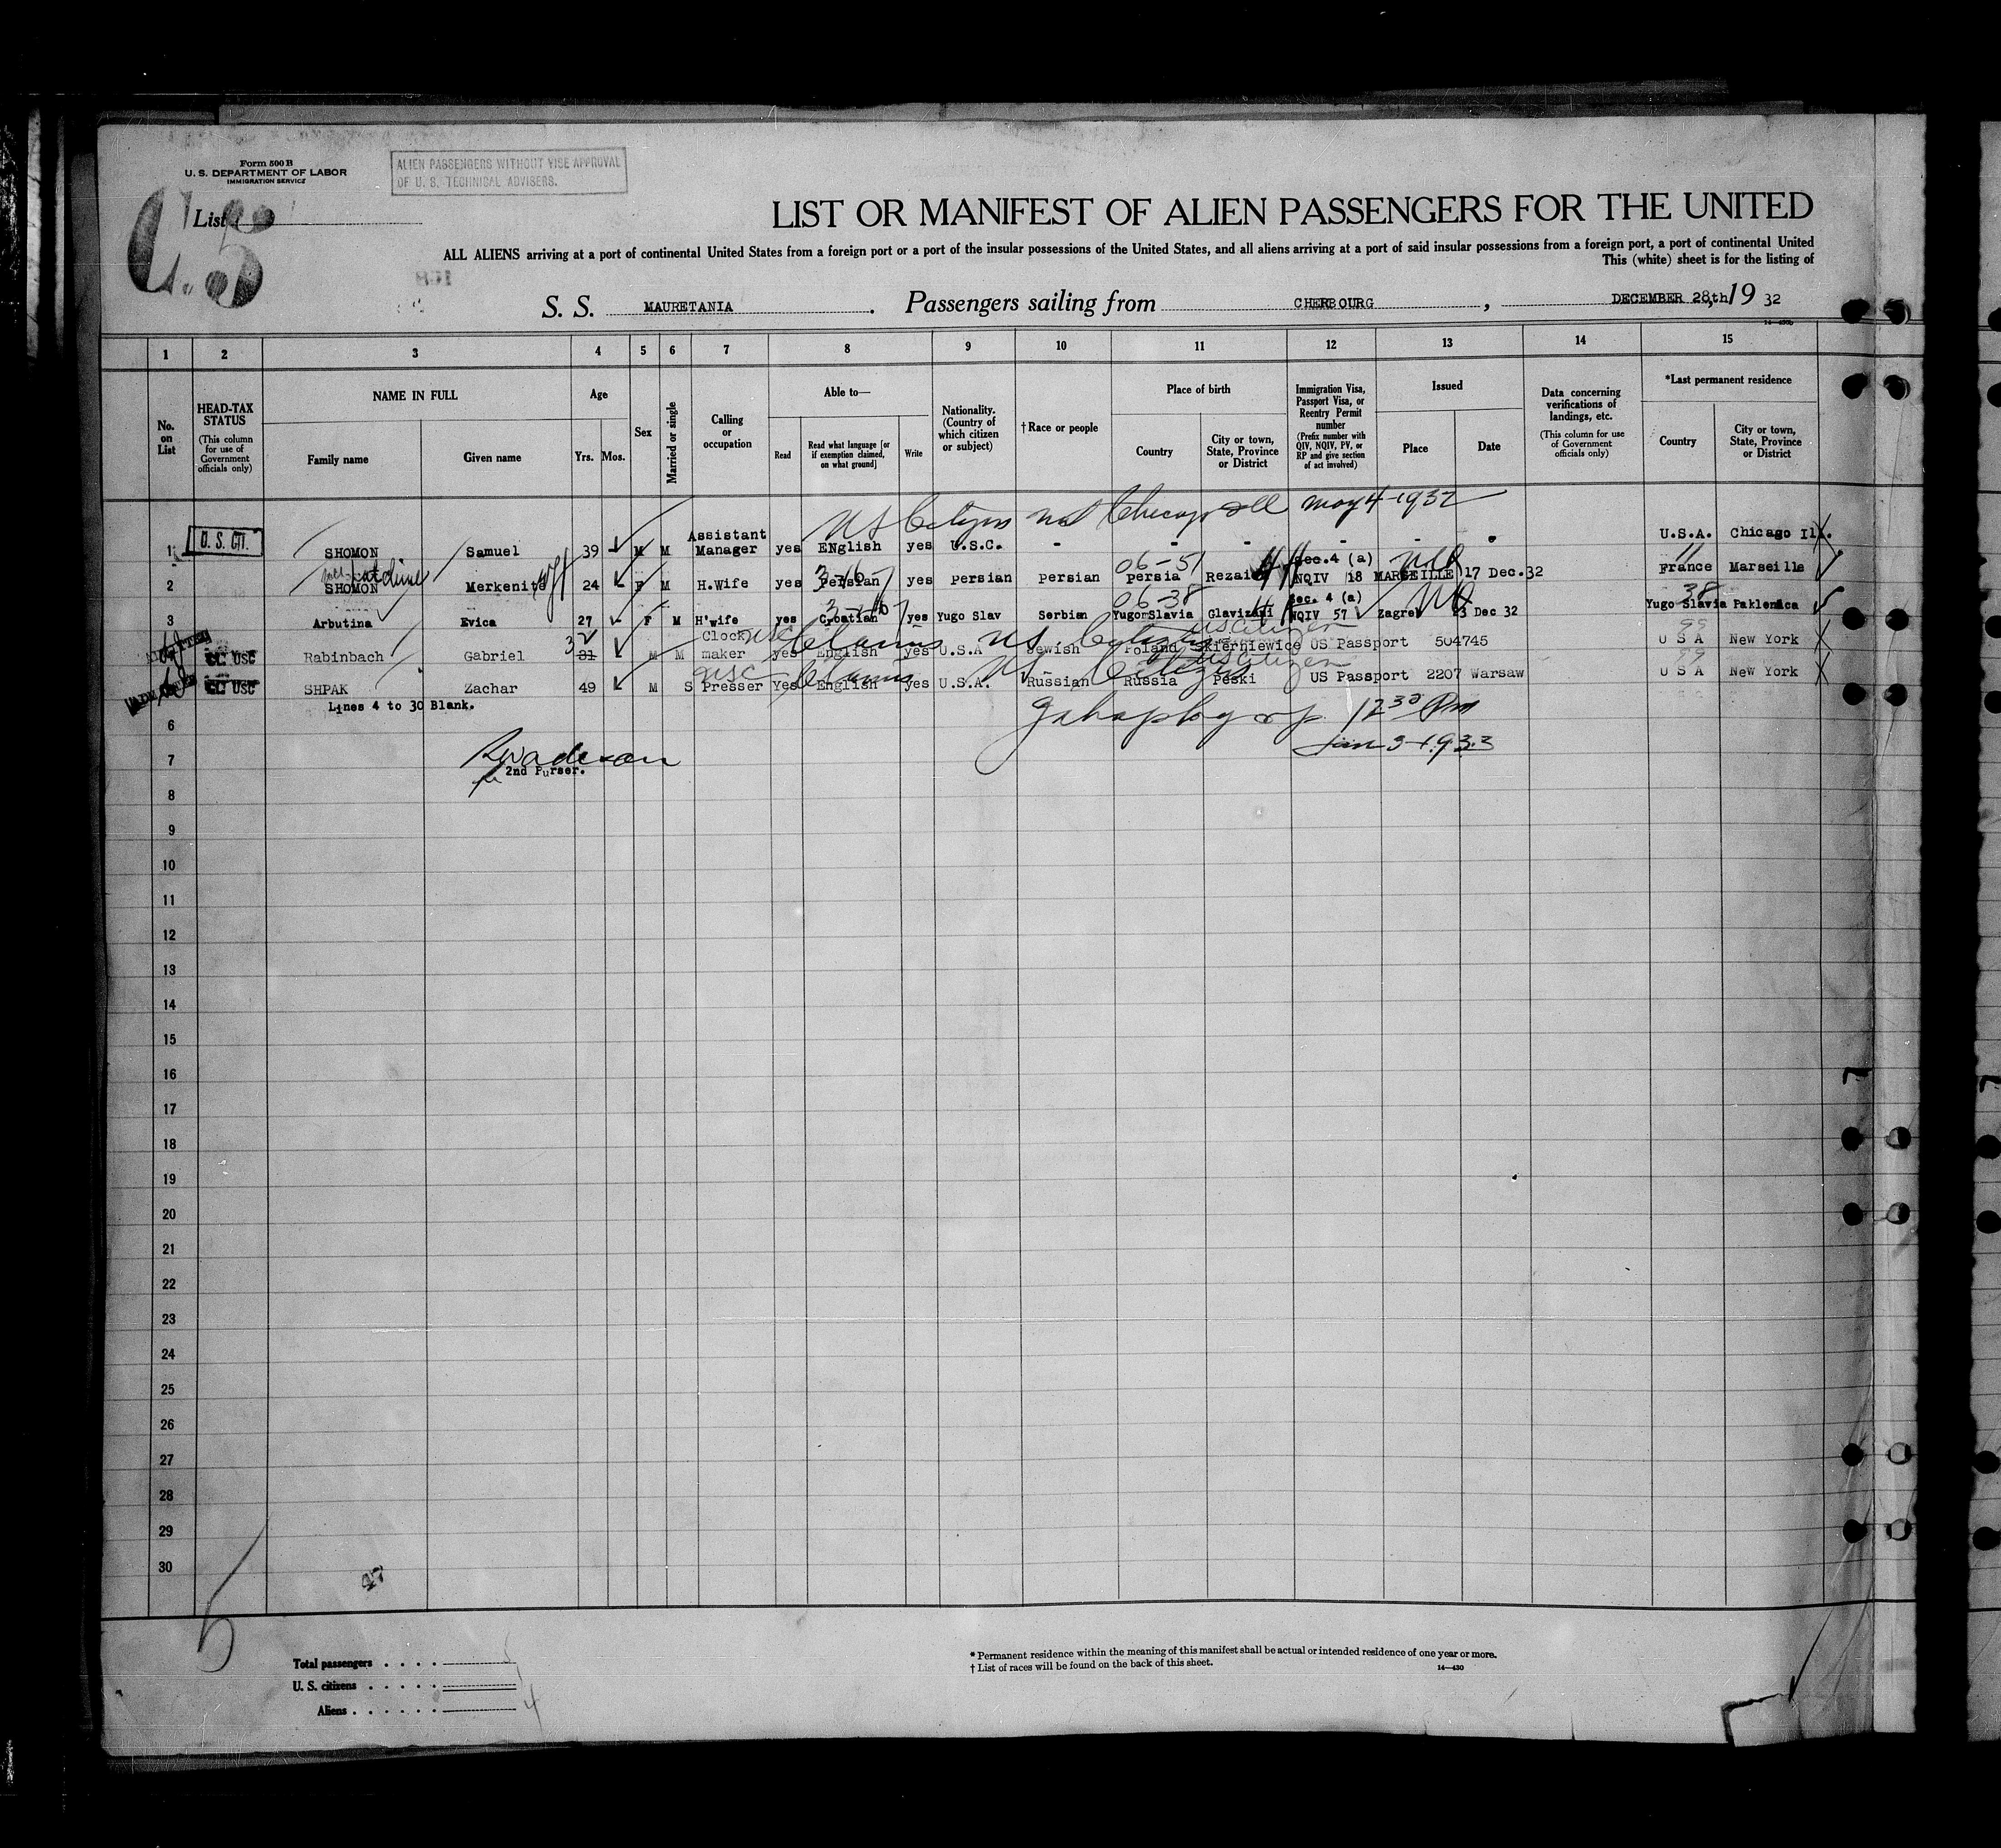 Form 500 B
U. S. DEPARTMENT OF LABOR
IMMIGRATION SERVICE
ALIEN PASSENGERS WITHOUT VISE APPROVAL
OF U. S. TECHNICAL ADVISERS.
List
5
LIST OR MANIFEST OF ALIEN PASSENGERS FOR THE UNITED
ALL ALIENS arriving at a port of continental United States from a foreign port or a port of the insular possessions of the United States, and all aliens arriving at a port of said insular possessions from a foreign port, a port of continental United
This (white) sheet is for the listing of
S. S. MAURETANIA. Passengers sailing from CHERBOURG, DECEMBER 28,th 19 32
1 2 3 4 5 6 7 8 9 10 11 12 13 14 15
No. on List
HEAD-TAX STATUS (This column for use of Government officials only)
NAME IN FULL
Family name Given name
Age
Yrs. Mos.
Sex
Married or single
Calling or occupation
Able to—
Read Read what language [or if exemption claimed, on what ground] Write
Nationality. (Country of which citizen or subject)
†Race or people
Place of birth
Country City or town, State, Province or District
Immigration Visa, Passport Visa, or Reentry Permit number (Prefix number with QIV, NQIV, PV, or RP and give section of act involved)
Issued
Place Date
Data concerning verifications of landings, etc. (This column for use of Government officials only)
*Last permanent residence
Country City or town, State, Province or District
US Citizen May 4-1932
1 U. S. CIT. SHOMON Samuel 39 - M M Assistant Manager yes ENglish yes U.S.C. - - - - - U.S.A. Chicago Ill.
06-51 11
2 SHOMON Merkenite 24 - F M H.Wife yes Persian yes Persian Persian Persia Rezaieh Sec.4 (a) NQIV 18 MARSEILLE 17 Dec.32 France Marseille
06-38 38
3 Arbutina Evica 27 - F M H'wife yes Croatian yes Yugo Slav Serbian YugoSlavia Sec. 4 (a) NQIV 57 Zagreb 23 Dec 32 Yugo Slavia Paklenica
usc Claims US Citizen US Citizen 99
CL USC Rabinbach Gabriel 32 31 M M Clock maker yes English yes U.S.A Jewish Poland Skierniewice US Passport 504745 U S A New York
usc Claims US Citizen US Citizen 99
CL USC SHPAK Zachar 49 M S Presser Yes English yes U.S.A. Russian Russia Peski US Passport 2207 Warsaw U S A New York
Lines 4 to 30 Blank.
6
12 30 Pm
Jan 3-1933
7
2nd Purser.
8
9
10
11
12
13
14
15
16
17
18
19
20
21
22
23
24
25
26
27
28
29
30
47
5
Total passengers . . . .
U. S. citizens . . . . .
Aliens . . . . . . 4
* Permanent residence within the meaning of this manifest shall be actual or intended residence of one year or more.
† List of races will be found on the back of this sheet.
14—430